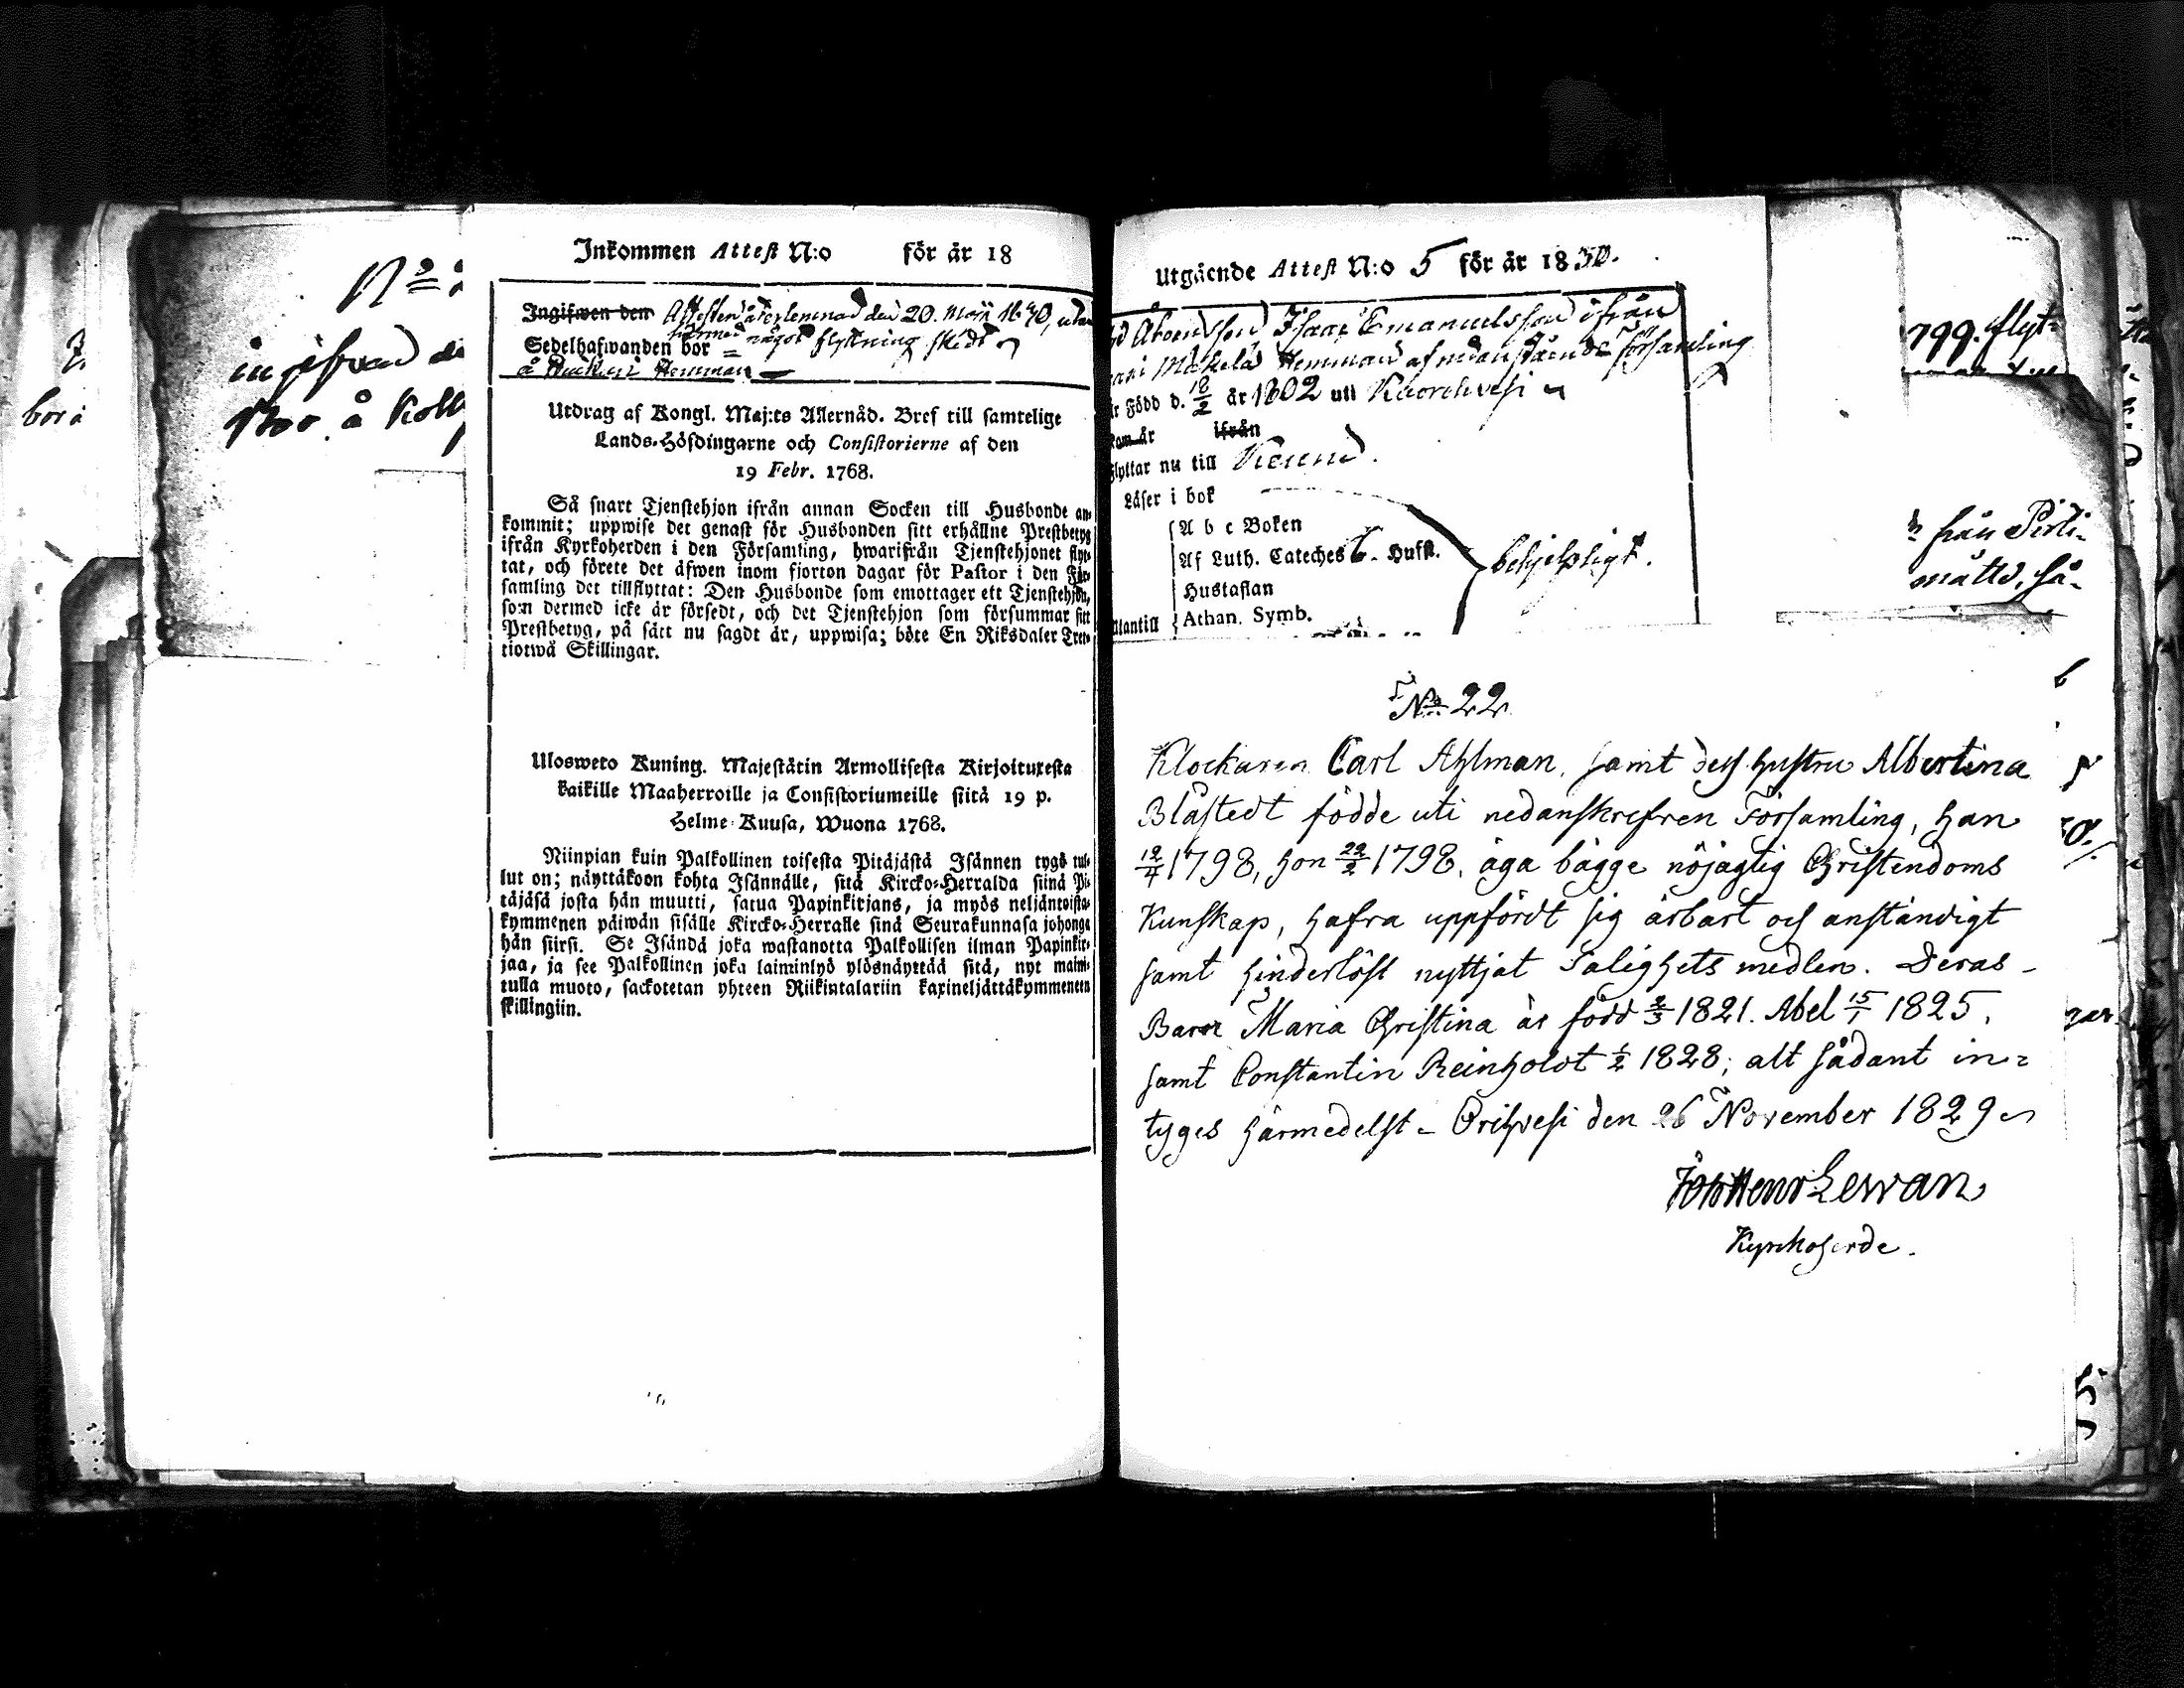 ingifvad
bor å Koll
bor å
Inkommen Attest N:o för år 18
Ingifwen den Attesten återlemnad den 20. Maji 1830, utan
Sedelhafwanden bor härmed någon flyttning skedt
å Hemman
Utdrag af Kongl. Maj:ts Allernåd. Bref till samtelige
Lands-Höfdingarne och Consistorierne af den
19 Febr. 1768.
Så snart Tjenstehjon ifrån annan Socken till Husbonde an-
kommit; uppwise det genast för Husbonden sitt erhållne Prestbetyg
ifrån Kyrkoherden i den Församling, hwarifrån Tjenstehjonet flyt-
tat, och förete det äfwen inom fjorton dagar för Pastor i den För-
samling det tillflyttat: Den Husbonde som emottager ett Tjenstehjon,
som dermed icke är försedt, och det Tjenstehjon som försummar sitt
Prestbetyg, på sätt nu sagdt är, uppwisa; böte En Riksdaler Tret-
tiotwå Skillingar.
Ulosweto Kuning. Majestätin Armollisesta Kirjoituxesta
kaikille Maaherroille ja Consistoriumeille siitä 19 p.
Helme-Kuusa, Wuona 1768.
Niinpian kuin Palkollinen toisesta Pitäjästä Isännen tygö tul-
lut on; näyttäkoon kohta Isännälle, sitä Kircko-Herralda siinä Pi-
täjäsä josta hän muutti, saatua Papinkirjans, ja myös neljäntoista-
kymmenen päiwän sisälle Kircko-Herralle sinä Seurakunnasa johonga
hän siirsi. Se Isändä joka wastanotta Palkollisen ilman Papinkir-
jaa, ja see Palkollinen joka laiminlyö ylösnäyttää sitä, nyt maini-
tulla muoto, sackotetan yhteen Riikintalariin kaxineljättäkymmeneen
skillingiin.
Utgående Attest N:o 5 för år 1830.
Isaac Emanuelsson ifrån
Mäkelä Hemman af nedanstående Församling
är Född d. 18/2 år 1802 uti Kuorehvesi
ifrån
Flyttar nu till
Läser i bok
A b c Boken
Af Luth. Cateches 6. Hufst. behjelpligt.
Hustaflan
Utantill Athan. Symb.
No 22
Klockaren Carl Ahlman, samt dess hustru Albertina
Blåstedt födde uti nedanskrefven Församling, han
12/4 1798, hon 22/2 1798, äga bägge nöjagtig Christendoms
Kunskap, hafva uppfördt sig ärbart och anständigt
samt hinderlöst nyttjat Salighets medlen. Deras
Barn Maria Christina är född 2/3 1821. Abel 15/1 1825,
samt Constantin Reinholdt 1/2 1828; alt sådant in=
tyges härmedelst – Orihvesi den 26 November 1829
Joh Henr Lewan
Kyrkoherde.
799. flyt=
från Pirti=
mättä, så-